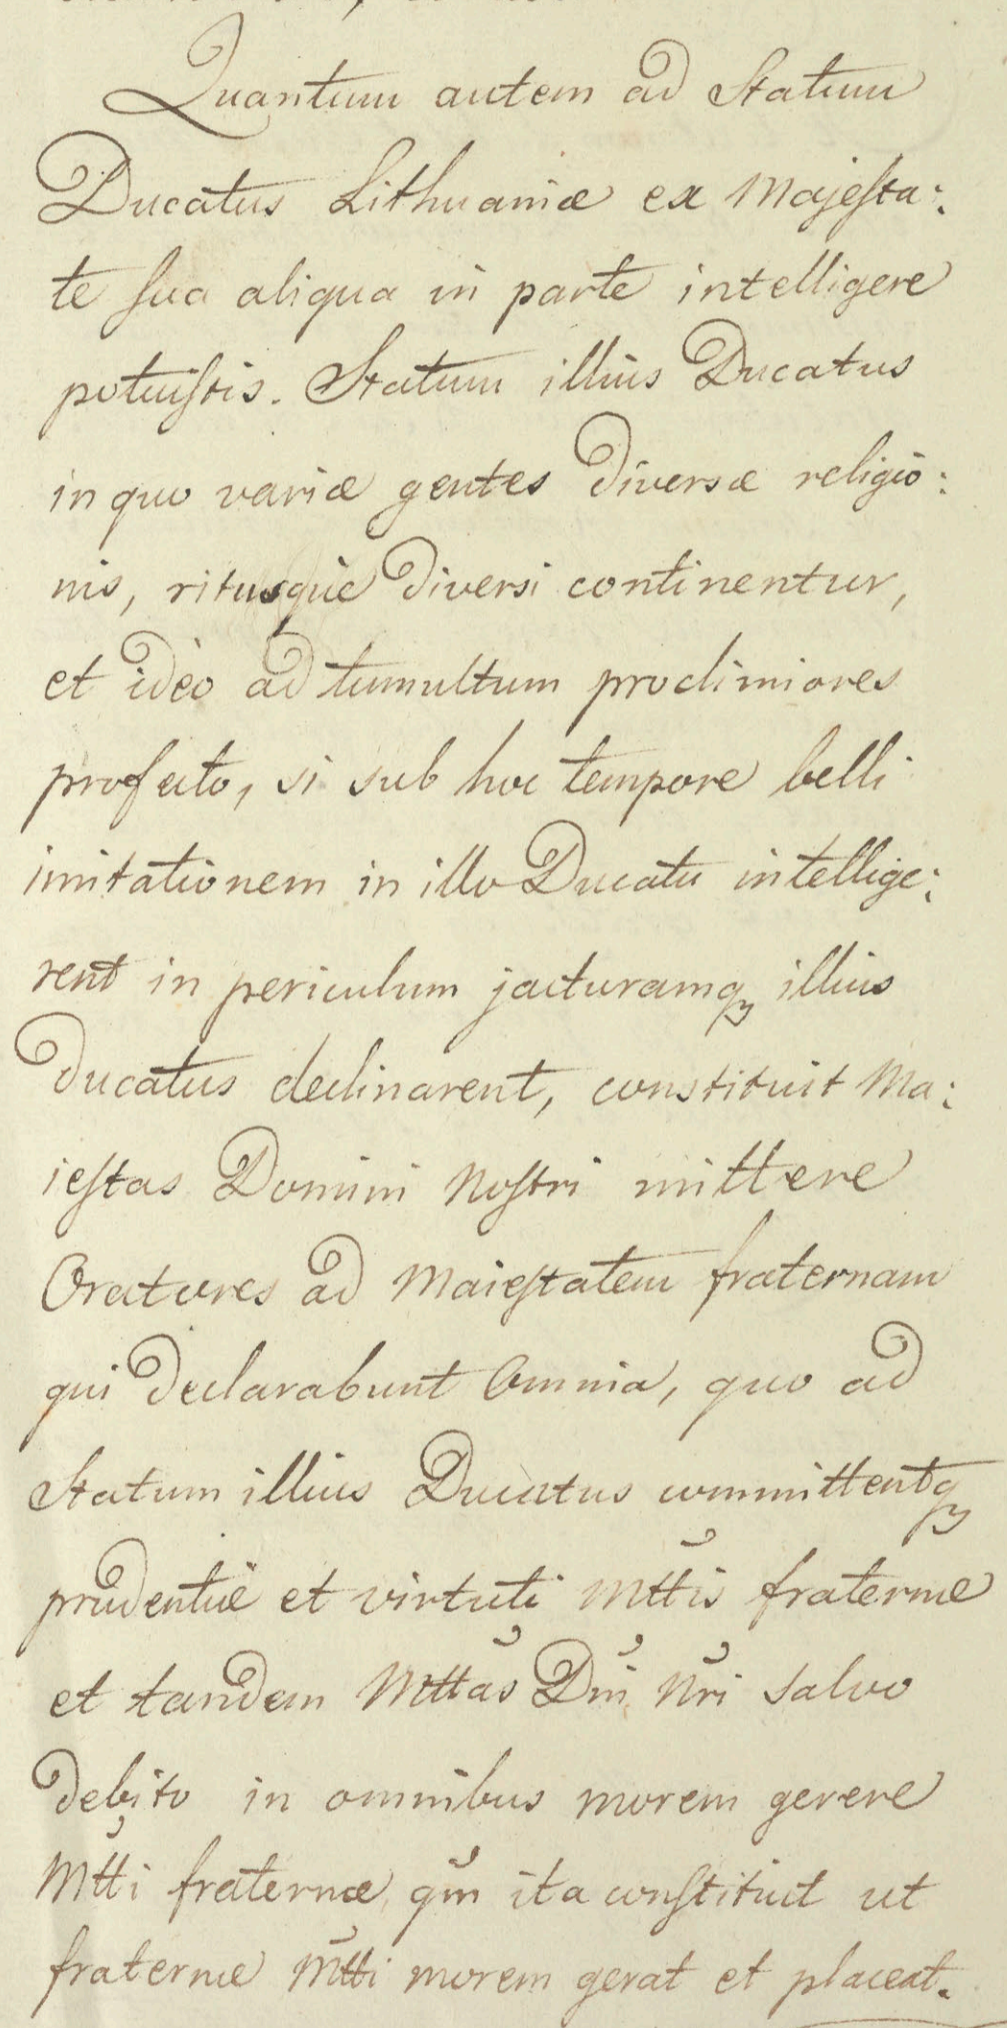 Quantum autem ad Statum
Ducatus Lithuaniæ ex Majesta:
te sua aliqua in parte intelligere
potuistis. Statum illius Ducatus
in quo variæ gentes diversæ religio:
nis, ritusque diversi continentur,
et idèo ad tumultum procliniores
profecto, si sub hoc tempore belli
imitationem in illo Ducatu intellige:
rent in periculum jacturamq3 illius
Ducatus declinarent, constituit Ma:
iestas Domini Nostri mittere
Oratores ad Maiestatem fraternam
qui declarabunt Omnia, quo ad
Statum illius Ducatus committentq3
prudentiæ et virtuti Mttis fraterne
et tandem Mttas Dni Nri salvo
debito in omnibus morem gerere
Mtti fraternæ, qm ita constituit ut
fraterne Mtti morem gerat et placeat.